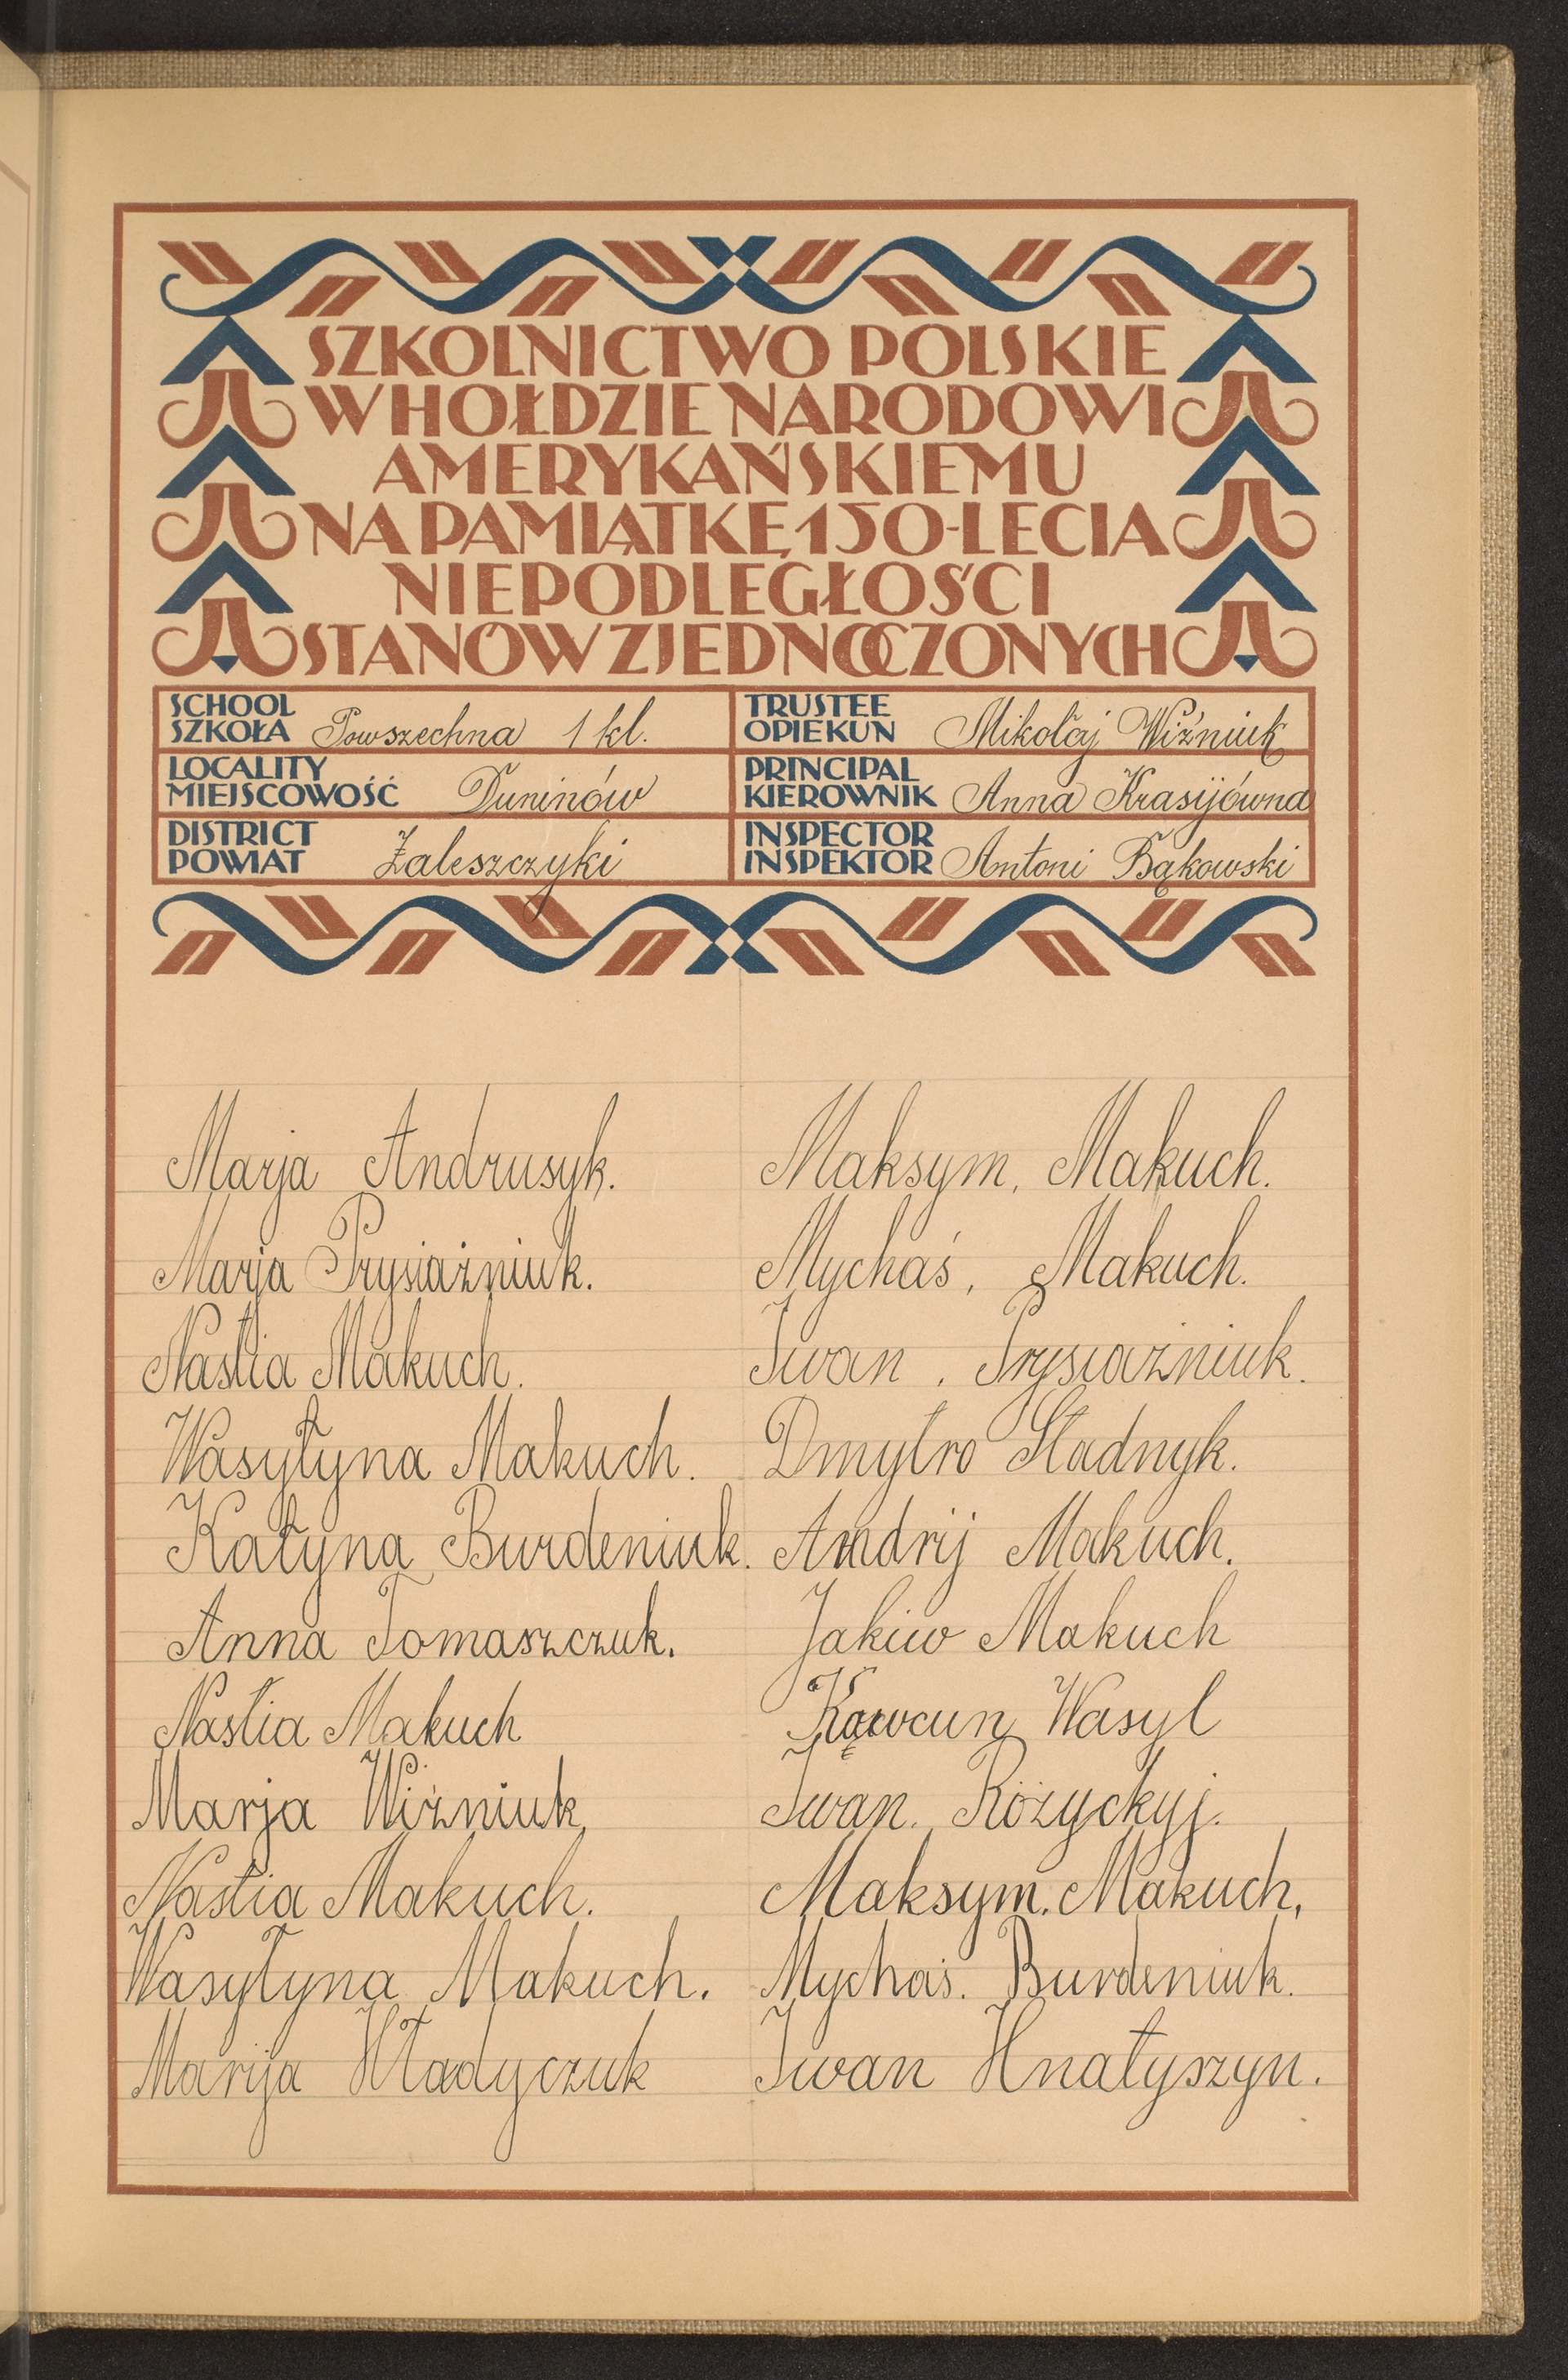 SZKOLNICTWO POLSKIE
W HOŁDZIE NARODOWI
AMERYKAŃSKIEMU
NA PAMIĄTKĘ 150-LECIA
NIEPODLEGŁOŚCI
STANÓW ZJEDNOCZONYCH
SCHOOL
SZKOŁA Powszechna 1 kl.
TRUSTEE
OPIEKUN Mikołaj Wiźniuk
LOCALITY
MIEJSCOWOŚĆ Duninów
PRINCIPAL
KIEROWNIK Anna Krasijówna
DISTRICT
POWIAT Zaleszczyki
INSPECTOR
INSPEKTOR Antoni Bąkowski
Marja Andrusyk.
Marja Prysiażniuk.
Nastia Makuch.
Wasyłyna Makuch.
Katyna Burdeniuk.
Anna Tomaszczuk.
Nastia Makuch
Marja Wiżniuk,
Nastia Makuch.
Wasyłyna Makuch.
Marija Hładyczuk
Maksym, Makuch.
Mychaś, Makuch.
Iwan. Prysiażniuk.
Dmytro Stadnyk.
Andrij Makuch.
Jakiw Makuch
Wasyl
Iwan. Różyckyj.
Maksym. Makuch,
Mychaś. Burdeniuk.
Iwan Hnatyszyn.